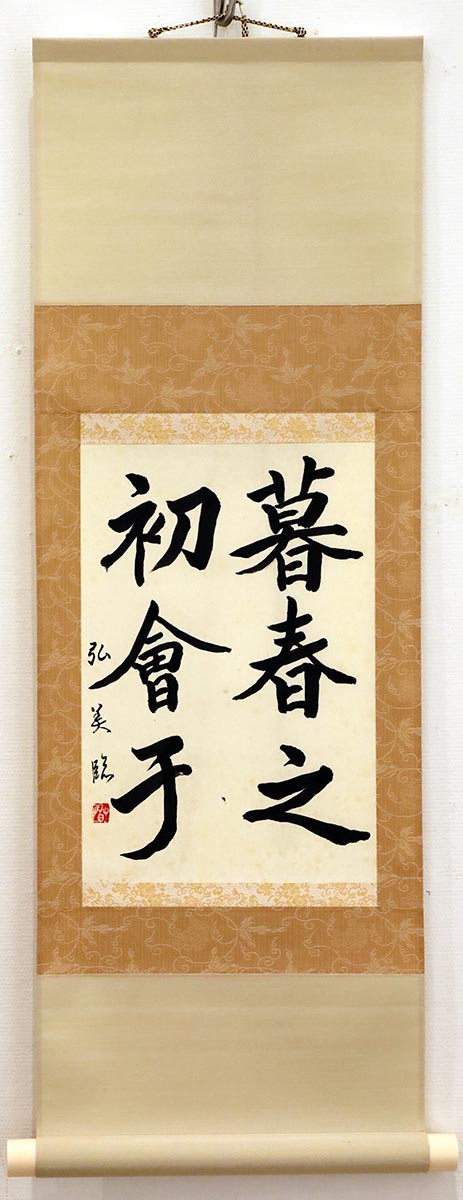 暮春之
初會于
弘美臨